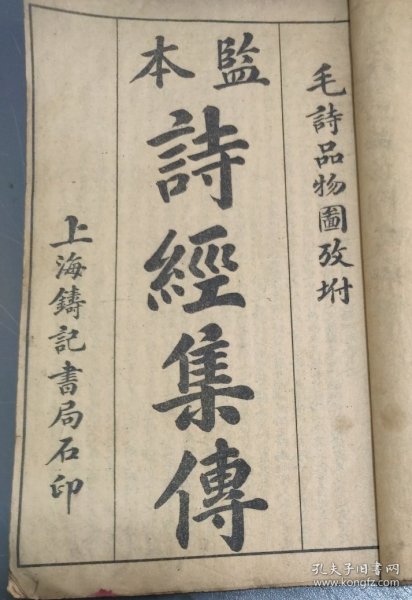 毛詩品物圖攷坿
監本
詩經集傳
上海鑄記書局石印
孔夫子旧书网